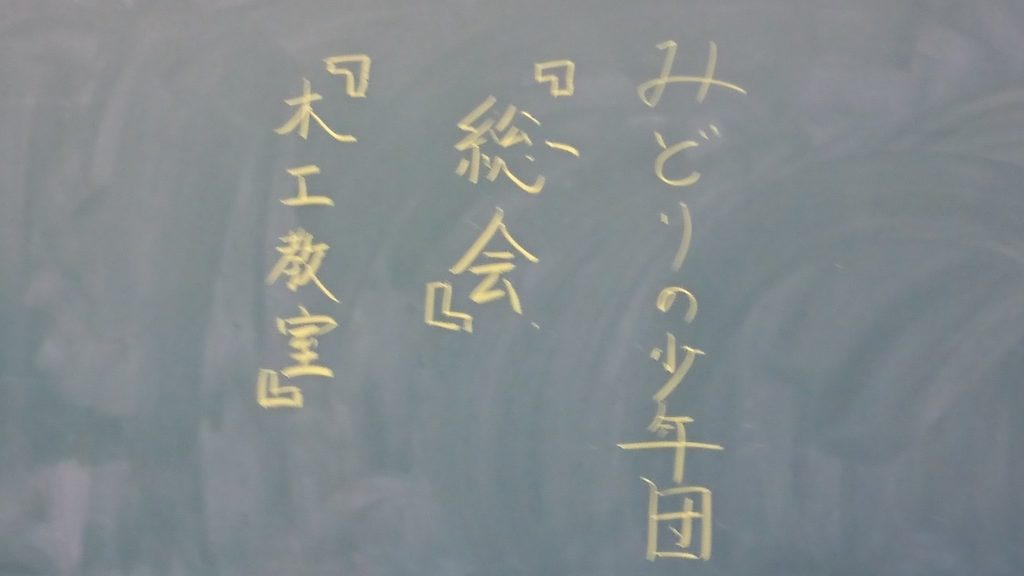 みどりの少年団
『総会』
『木工教室』